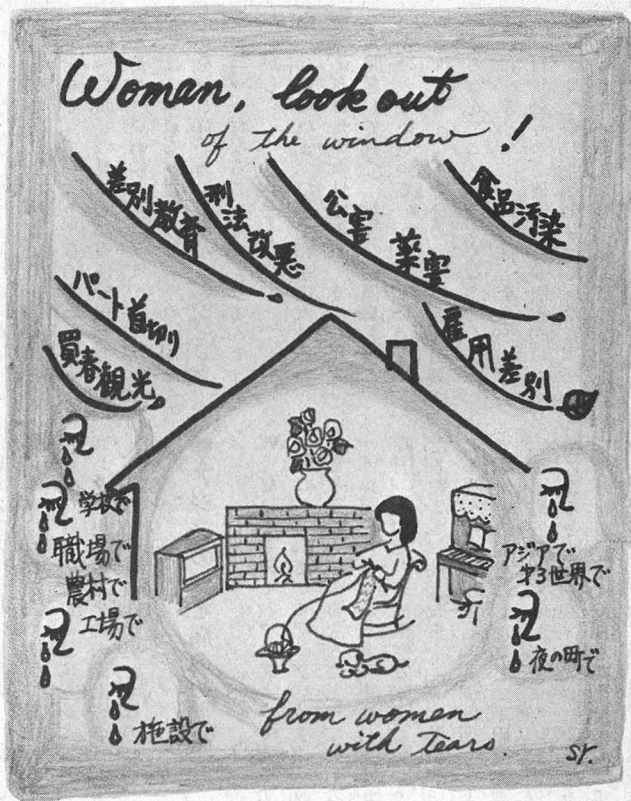 Woman, look out
of the window!
差別教育
刑法改悪
公害 薬害
食品汚染
パート首切り
買春観光
雇用差別
学校で
職場で
農村で
工場で
施設で
アジアで
才3世界で
夜の町で
from women
with tears.
sr.